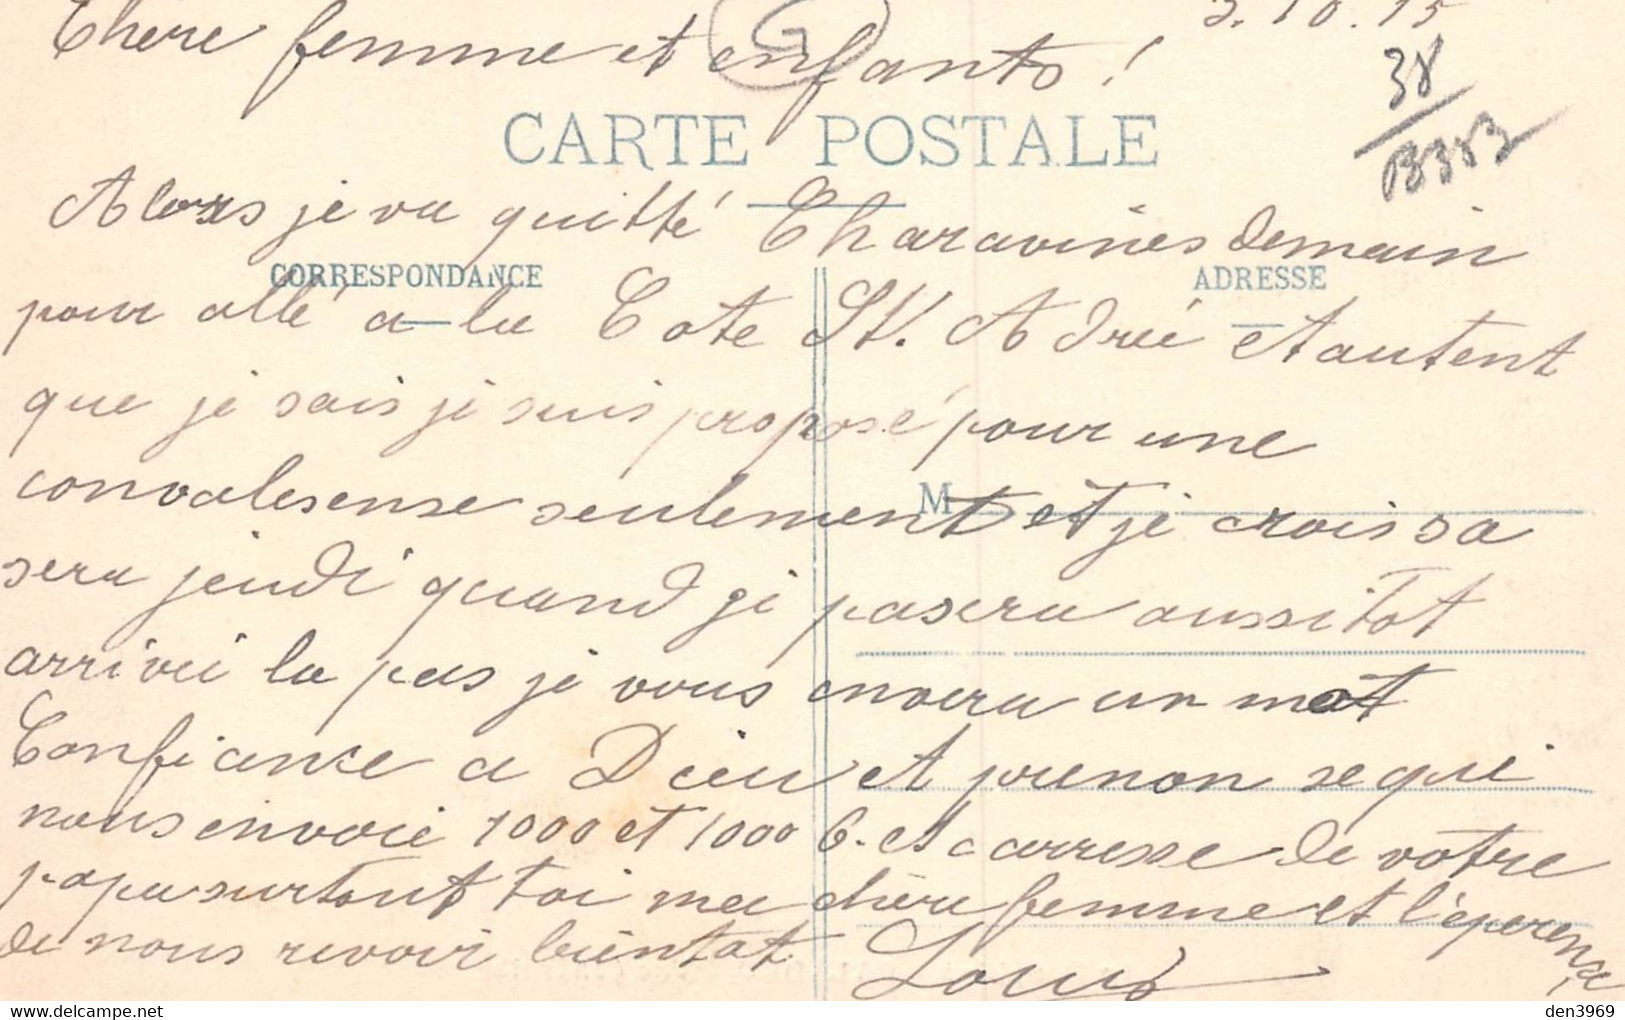 3.10.15
Chère femme et enfants!
G
38
B383
CARTE POSTALE
Alors je va quitté Charavines demain
CORRESPONDANCE
ADRESSE
pour allé a la Cote St. Adrié et autent
que je sais je suis proposé pour une
M
convalesense seulement et je crois sa
sera jeudi quand je pasera aussitot
arrivé la pas je vous envera un mot
Confianse a Dieu et prenon se qui
nous envoie 1000 et 1000 b. et carresse de votre
papa surtout toi ma chère femme et l'éperense
de nous revoir bientat
Louis
www.delcampe.net
den3969